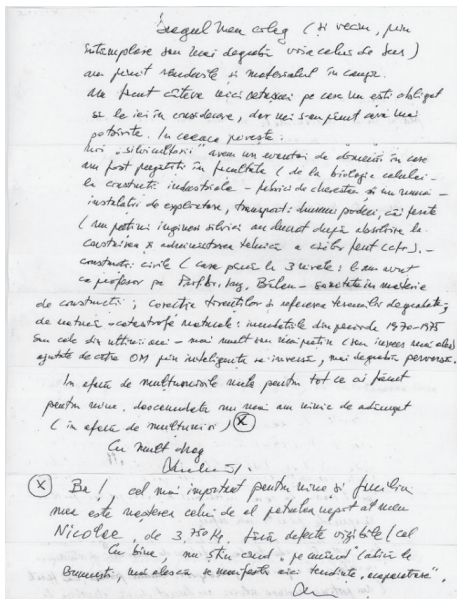 Dragul meu coleg (și vecin, prin
întâmplare sau mai degrabă voia celui de Sus)
am primit rândurile și materialul în cauză.
Am făcut câteva mici cetașuri pe care nu ești obligat
să le iei în considerare, dar mi s-au părut a fi mai
potrivite. În ceea ce privește:
Noi "silvicultorii" avem un evantai de domenii în care
am fost pregătiți în facultate (de la biologia celulei -
la construcții industriale - fabrici de cherestea și nu numai -
instalații de exploatare, transport: drumuri, poduri, căi ferate
(nu puțini ingineri silvici au lucrat după absolvire la
construirea și administrarea tehnică a căilor ferate (cfr). -
construcții civile (case până la 3 nivele; l-am avut
ca profesor pe Prof. Dr. Ing. Bălan - somitate în materie
de construcții; corecția torenților și refacerea terenurilor degradate;
de natură - catastrofe naturale: inundațiile din perioada 1970-1975
sau cele din ultimii ani - mai mult sau mai puțin (sau invers mai ales)
ajutate de către OM prin inteligența sa inversă, mai degrabă perversă.
În afară de mulțumirile mele pentru tot ce ai făcut
pentru mine, deocamdată nu mai am nimic de adăugat
(în afară de mulțumiri) (X)
Cu mult drag
(X) Ba!, cel mai important pentru mine și familia
mea este nașterea celui de al patrulea nepot al meu
Nicolae, de 3,750 kg, fără defecte vizibile (cel
Cu bine nu știu când pe curând (abia la
București, mai ales că se manifestă aici tendințe "